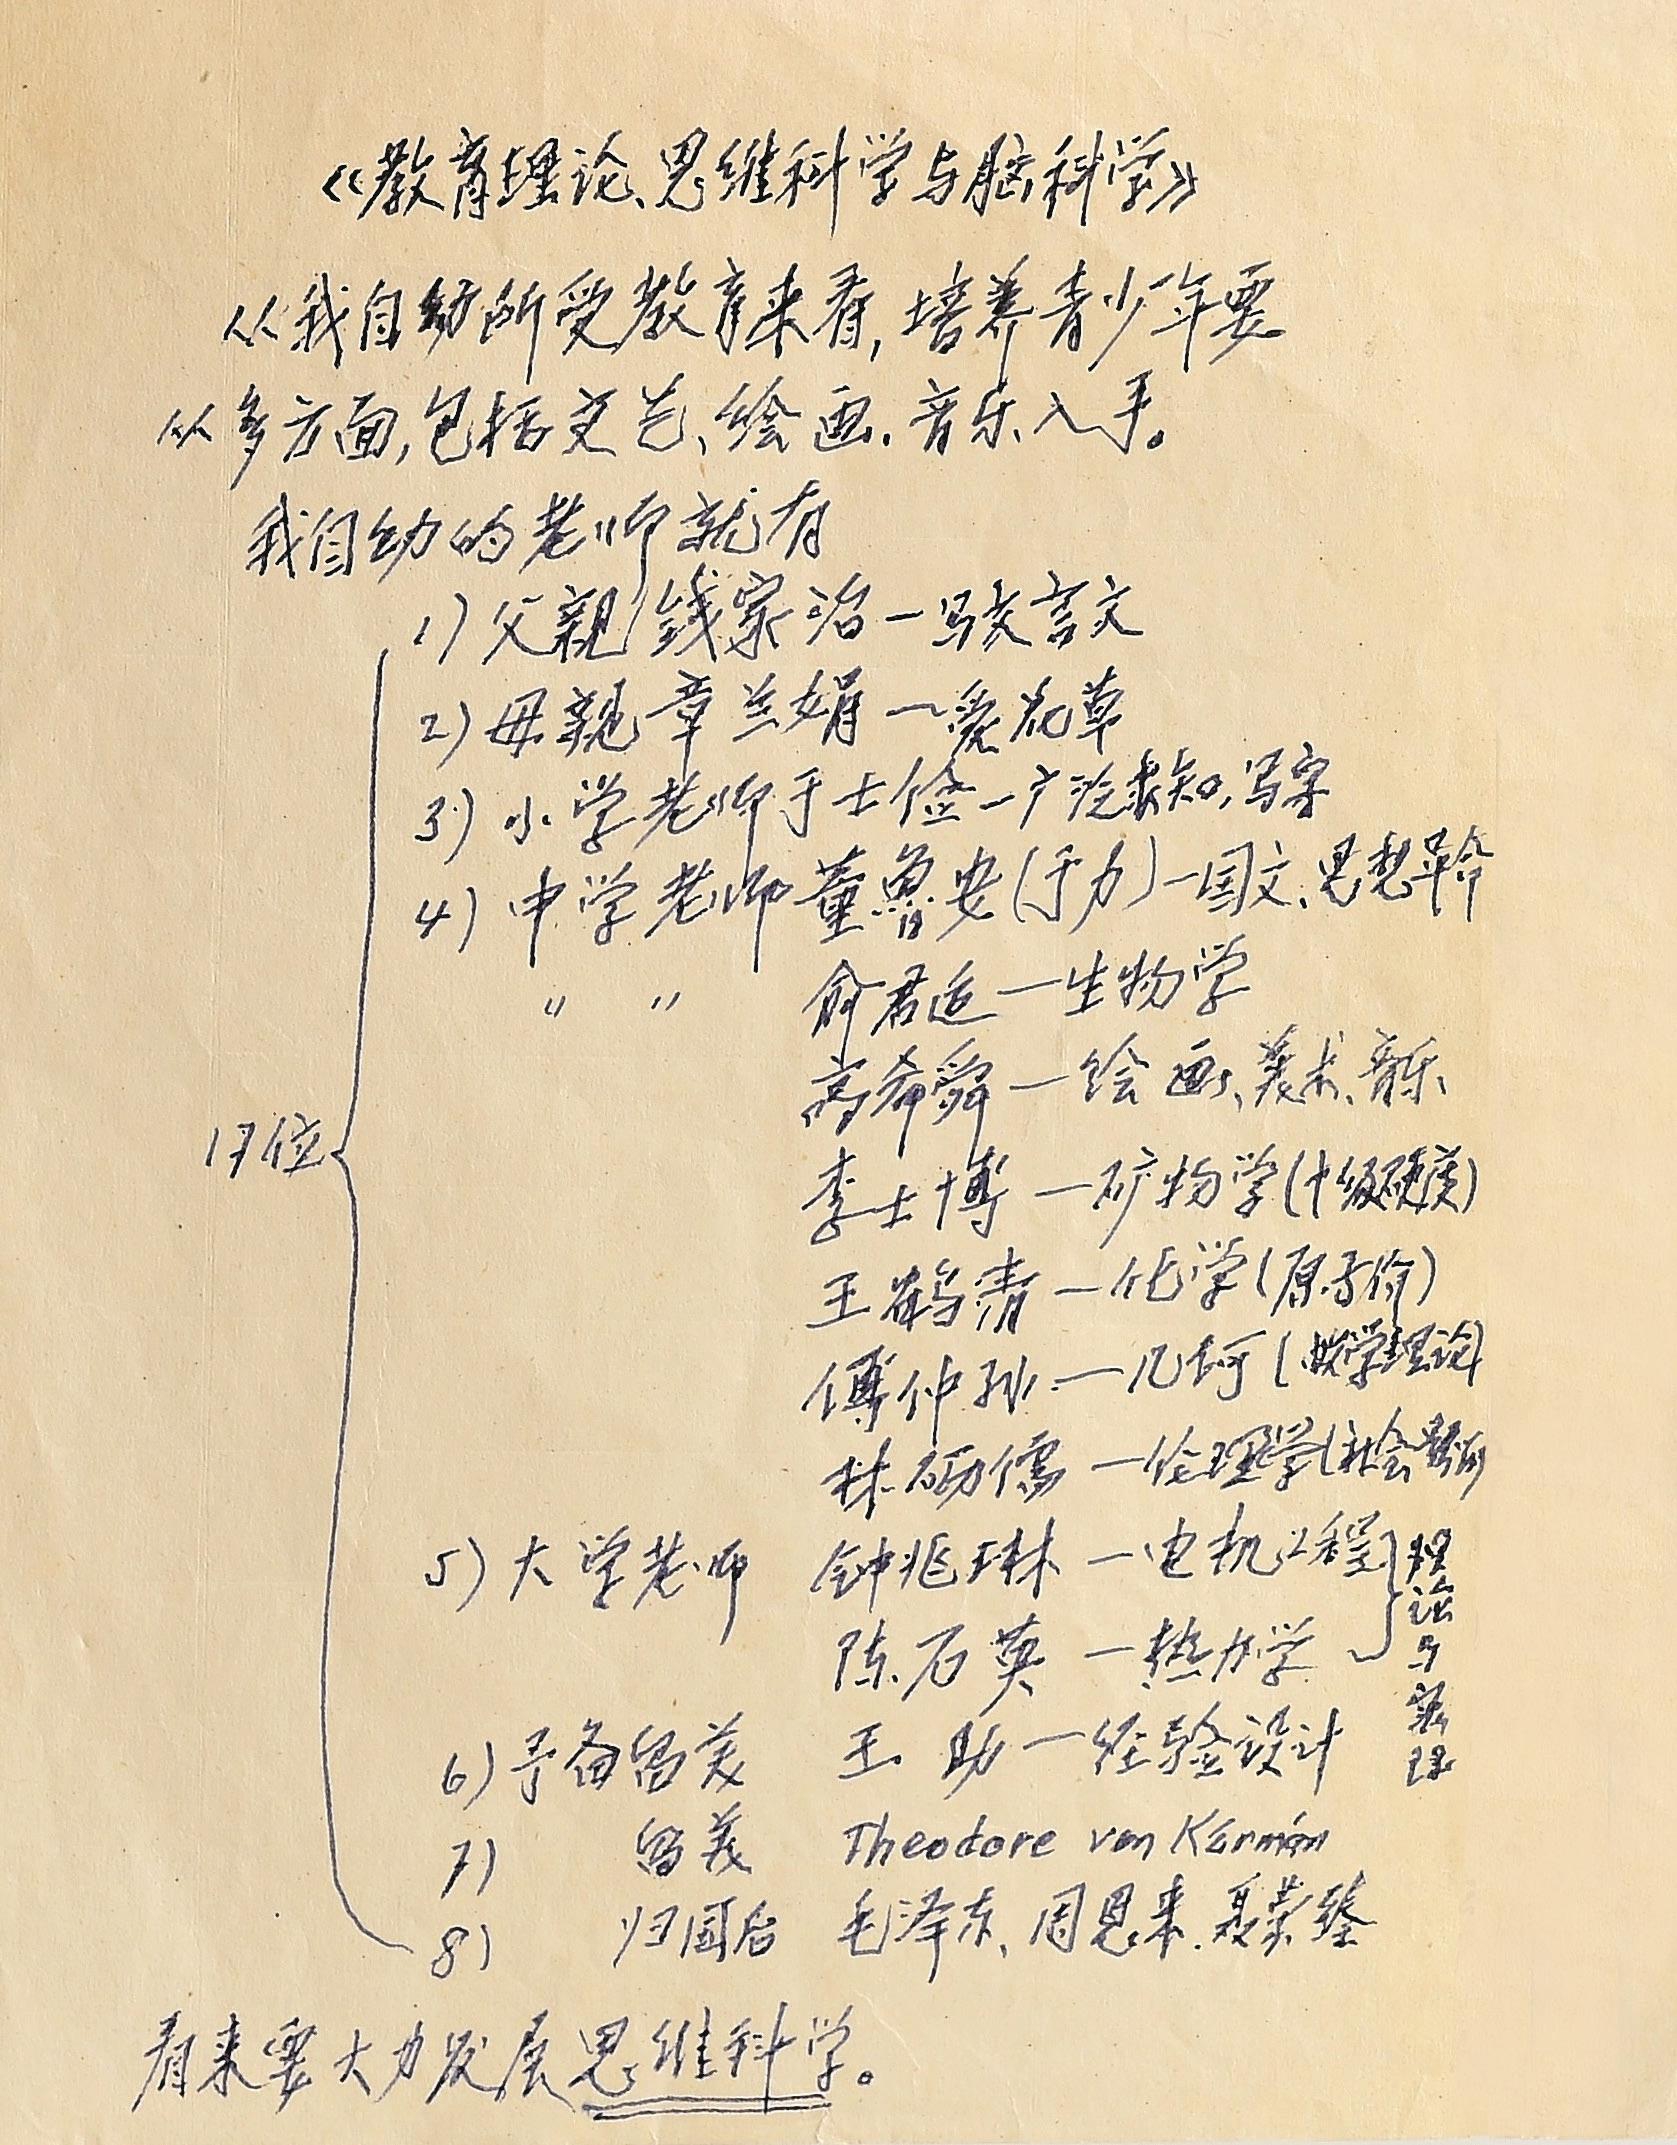 《教育理论、思维科学与脑科学》
从我自幼所受教育来看，培养青少年要
从多方面，包括文艺、绘画、音乐、入手。
我自幼的老师就有
1) 父親 钱家治一写文言文
2) 母親 章兰娟一爱花草
3) 小学老师于士俭一广泛求知，写字
4) 中学老师 董鲁安(于力)一国文、思想革命
〃 〃 俞君适一生物学
高希舜一绘画、美术、音乐
李士博一矿物学(十级硬度)
王鹤清一化学(原子价)
傅仲孙一几何(数学理论)
林砺儒一伦理学(社会
5) 大学老师 钟兆琳一电机工程
陈石英一热力学
理论与实理
6) 予备留美 王助一经验设计
7) 留美 Theodore von Kármán
8) 归国后 毛泽东、周恩来、聂荣臻
17位
看来要大力发展思维科学。